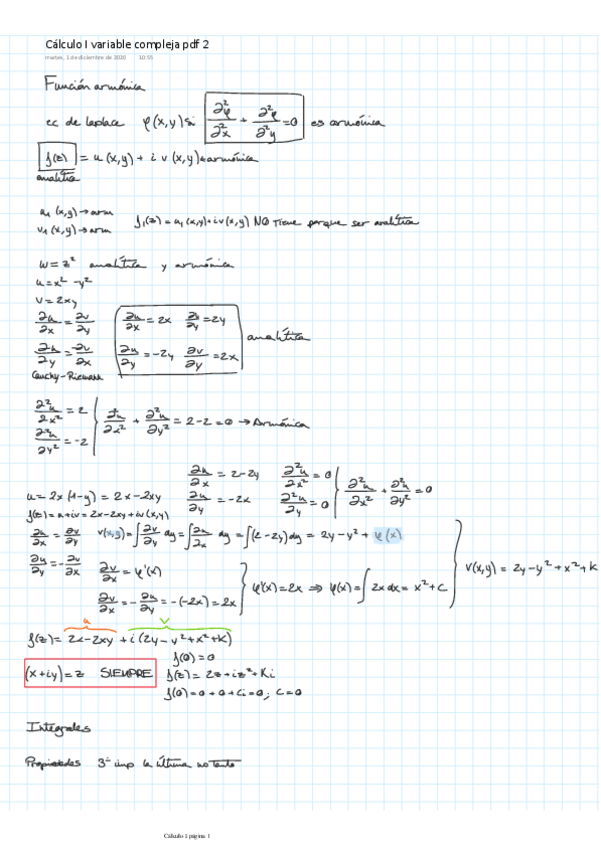 Cálculo I variable compleja pdf 2
martes, 1 de diciembre de 2020 10:55
Función armónica
ec de laplace φ(x,y) si ∂²φ/∂²x + ∂²φ/∂²y = 0 es armónica
f(z) = u(x,y) + i v(x,y) armónica
analítica
u₁(x,y) → arm
v₁(x,y) → arm
f₁(z) = u₁(x,y) + iv(x,y) NO tiene porque ser analítica
w = z² analítica y armónica
u = x² - y²
v = 2xy
∂u/∂x = ∂v/∂y
∂u/∂x = 2x ∂v/∂y = 2y
analítica
∂u/∂y = -∂v/∂x
∂u/∂y = -2y ∂v/∂y = 2x
Cauchy-Riemann
∂²u/∂x² = 2
∂²u/∂y² = -2
∂²u/∂x² + ∂²u/∂y² = 2-2 = 0 → Armónica
∂u/∂x = 2-2y ∂²u/∂x² = 0
∂u/∂y = -2x ∂²u/∂y² = 0
∂²u/∂x² + ∂²u/∂y² = 0
u = 2x(1-y) = 2x-2xy
f(z) = u+iv = 2x-2xy+iv(x,y)
∂u/∂x = ∂v/∂y v(x,y) = ∫ ∂v/∂y dy = ∫ ∂u/∂x dy = ∫(2-2y)dy = 2y-y² + φ(x)
∂u/∂y = -∂v/∂x ∂v/∂x = φ'(x)
∂v/∂x = -∂u/∂y = -(-2x) = 2x
φ'(x) = 2x ⇒ φ(x) = ∫2x dx = x² + C
v(x,y) = 2y-y²+x²+k
u v
f(z) = 2x-2xy + i(2y-y²+x²+k)
f(0) = 0
(x+iy) = z SIEMPRE
f(z) = 2z+iz²+Ki
f(0) = 0+0+Ci = 0; C = 0
Integrales
Propiedades 3ª imp la última no tanto
Cálculo 1 página 1